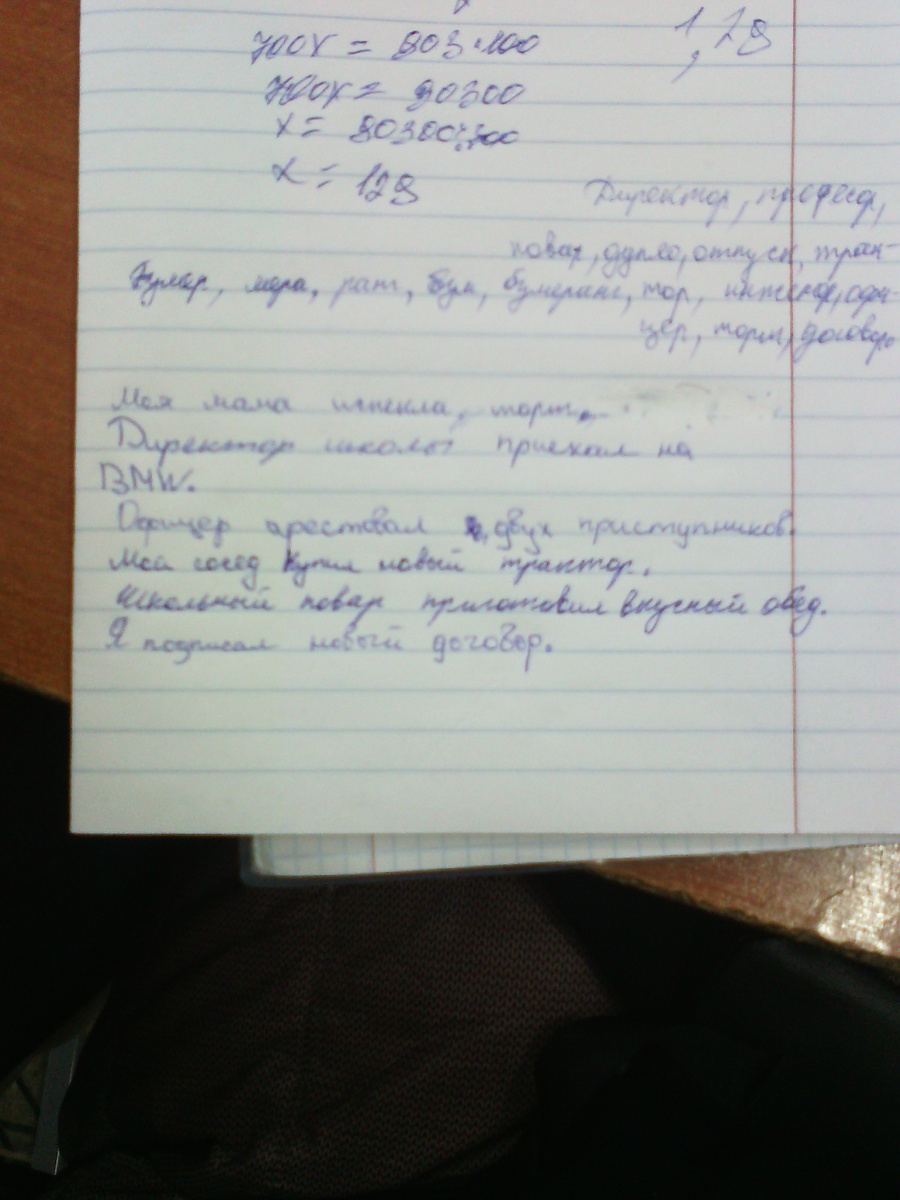 700x = 903·100
1,29
700x = 90300
x = 90300:700
x = 129
Директор, професор,
повар, дупло, отпуск, трак-
мера, рант, бум, бумеранг, тор, офи-
цер, торт, договор
Моя мама испекла торт.
Директор школы приехал на
BMW.
Офицер арестовал двух приступников.
Мой сосед купил новый трактор.
Школьный повар приготовил вкусный обед.
Я подписал новый договор.